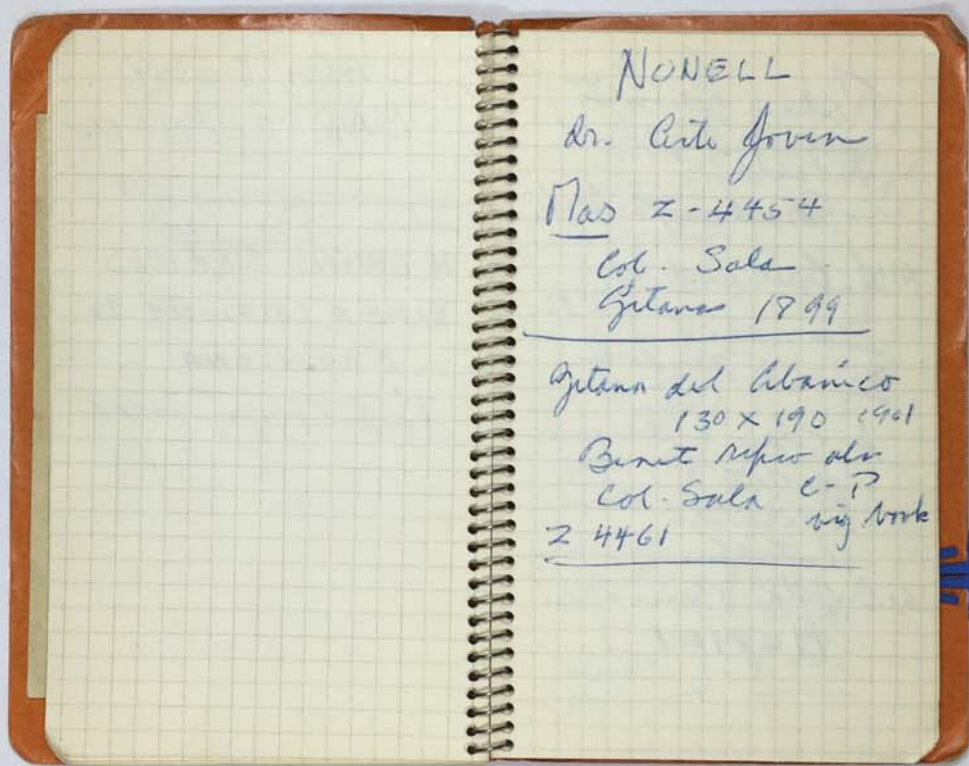 NONELL
dr. Arte Joven
Mas Z-4454
Col. Sala
Gitanas 1899
Gitana del Abanico
130 X 190 1901
Benet repro
Col. Sala C-P
big book
Z 4461